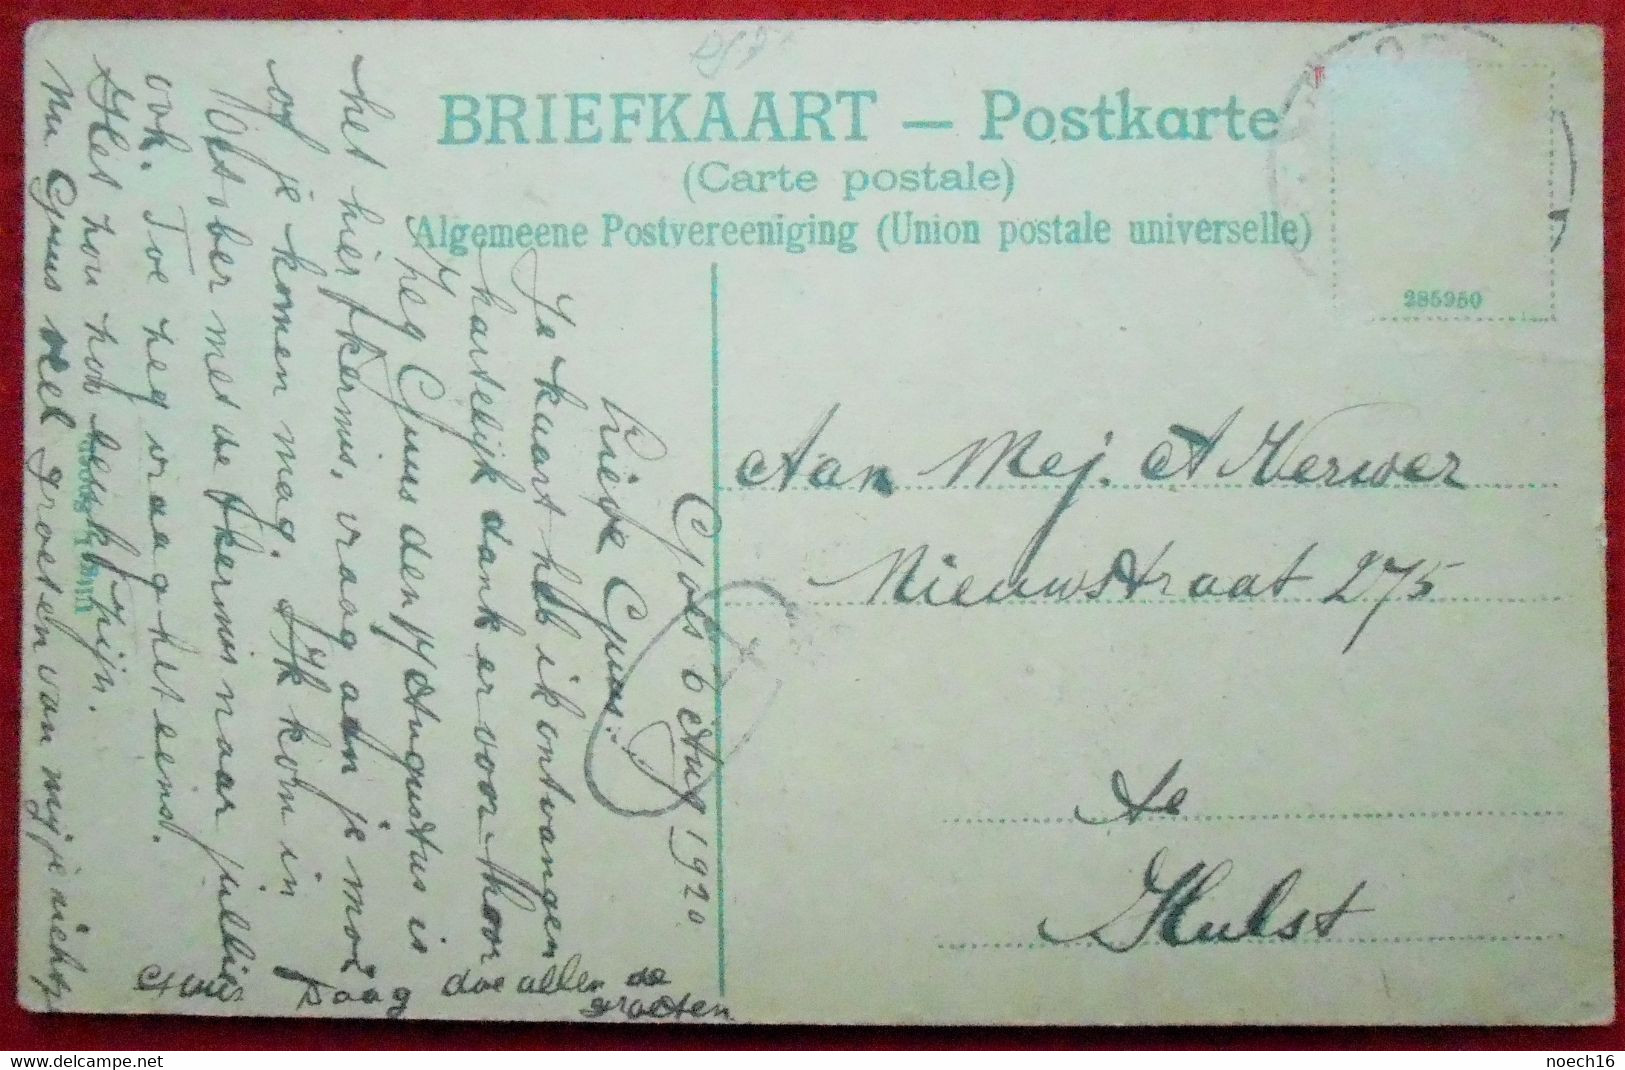 BRIEFKAART — Postkarte
(Carte postale)
Algemeene Postvereeniging (Union postale universelle)
285250
Aan Mej. A Verwer
Nieuwstraat 275
te
Hulst
Goes 6 Aug 1920
Lieve Guus.
Je kaart heb ik ontvangen
hartelijk dank er voor hoor
Zeg Guus den Augustus is
het hier kermis, vraag aan je moe
of je komen mag. Ik kom in
October met de kermis naar jullie
ook. Toe zeg vraag het eens.
Het zou zoo leuk zijn.
Nu Guus veel groeten van mij je nichtje
Daag doe allen de
groeten
noech16